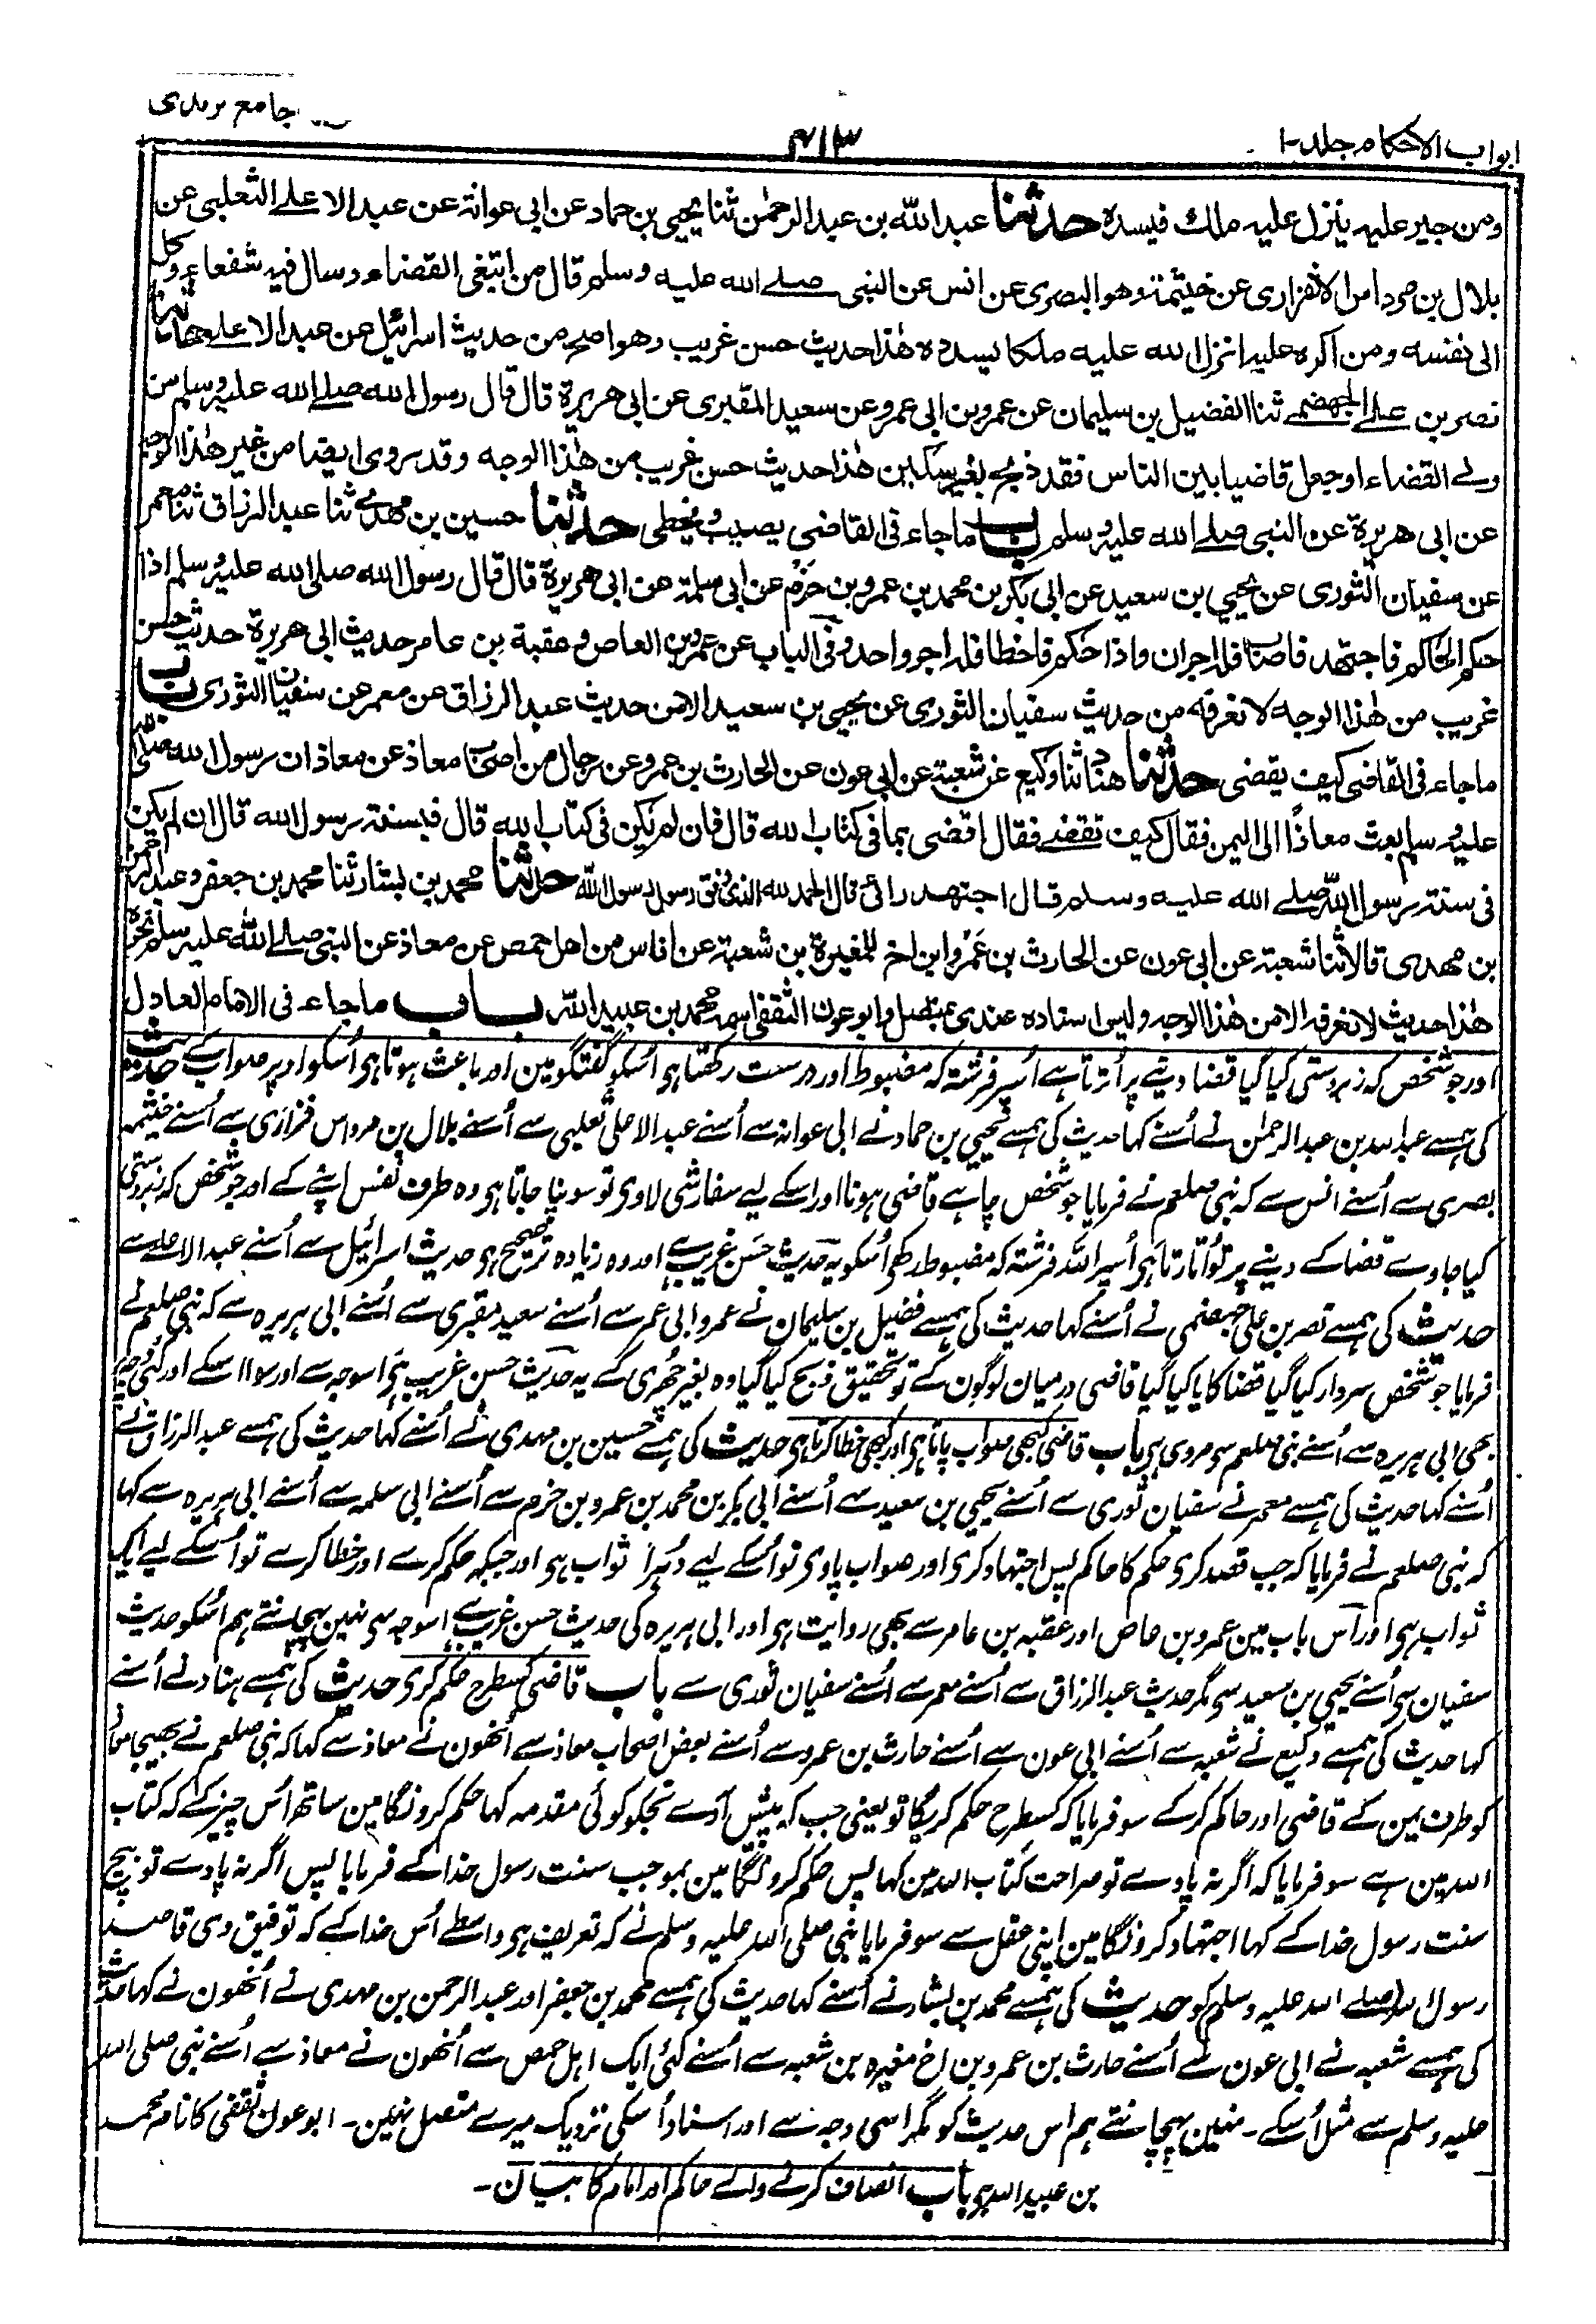 جامع ترمذی
۴۱۳
ابواب الاحکام جلد-۱
ومن جبر علیہ ینزل علیہ ملك فیسددہ حدثنا عبد اللہ بن عبد الرحمٰن ثنا یحیی بن حماد عن ابی عوانۃ عن عبد الاعلے الثعلبی عن
بلال بن مرداس الفزاری عن خیثمۃ وھو البصری عن انس عن النبی صلے اللہ علیہ وسلم قال من ابتغی القضاء وسال فیہ شفعاء وکل
الی نفسہ ومن اکرہ علیہ انزل اللہ علیہ ملکا یسددہ ھٰذا حدیث حسن غریب وھو اصح من حدیث اسرائیل عن عبد الاعلے حدثنا
نصر بن علے الجھضمے ثنا الفضیل بن سلیمان عن عمرو بن ابی عمرو عن سعید المقبری عن ابی ھریرۃ قال قال رسول اللہ صلے اللہ علیہ وسلم من
ولے القضاء او جعل قاضیا بین الناس فقد ذبح بغیر سکین ھٰذا حدیث حسن غریب من ھٰذا الوجہ وقد روی ایضا من غیر ھٰذا الوجہ
عن ابی ھریرۃ عن النبی صلے اللہ علیہ وسلم باب ماجاء فی القاضی یصیب ویخطی حدثنا حسین بن مھدے ثنا عبد الرزاق ثنا معمر
عن سفیان الثوری عن یحیی بن سعید عن ابی بکر بن محمد بن عمرو بن حزم عن ابی سلمۃ عن ابی ھریرۃ قال قال رسول اللہ صلی اللہ علیہ وسلم اذا
حکم الحاکم فاجتھد فاصاب فلہ اجران واذا حکم فاخطا فلہ اجر واحد وفی الباب عن عمرو بن العاص وعقبۃ بن عامر حدیث ابی ھریرۃ حدیث حسن
غریب من ھٰذا الوجہ لا نعرفہ من حدیث سفیان الثوری عن یحیی بن سعید الا من حدیث عبد الرزاق عن معمر عن سفیان الثوری باب
ماجاء فی القاضی کیف یقضی حدثنا ھناد ثنا وکیع عن شعبۃ عن ابی عون عن الحارث بن عمرو عن رجال من اصحاب معاذ عن معاذ ان رسول اللہ صلی اللہ
علیہ وسلم بعث معاذاً الی الیمن فقال کیف تقضے فقال اقضی بما فی کتاب اللہ قال فان لم یکن فی کتاب اللہ قال فبسنۃ رسول اللہ قال ان لم یکن
فی سنۃ رسول اللہ صلے اللہ علیہ وسلم قال اجتھد رائی قال الحمد للہ الذی وفق رسول رسول اللہ حدثنا محمد بن بشار ثنا محمد بن جعفر وعبد الرحمن
بن مھدی قالا ثنا شعبۃ عن ابی عون عن الحارث بن عمرو ابن اخ للمغیرۃ بن شعبۃ عن اناس من اھل حمص عن معاذ عن النبی صلے اللہ علیہ وسلم نحوہ
ھٰذا حدیث لا نعرفہ الا من ھٰذا الوجہ ولیس اسنادہ عندی بمتصل وابو عون الثقفی اسمہ محمد بن عبید اللہ باب ماجاء فی الامام العادل
اور جو شخص کہ زبردستی کیا گیا قضا دینے پر اُترتا ہے اُسپر فرشتہ کہ مضبوط اور درست رکھتا ہی اُسکو گفتگو مین اور باعث ہوتا ہی اُسکو اوپر صواب کے حدیث
کی ہمسے عبد اللہ بن عبد الرحمٰن نے اُسنے کہا حدیث کی ہمسے یحیی بن حماد نے ابی عوانہ سے اُسنے عبد الاعلی ثعلبی سے اُسنے بلال بن مرداس فزاری سے اُسنے خیثمہ
بصری سے اُسنے انس سے کہ نبی صلعم نے فرمایا جو شخص چاہے قاضی ہونا اور اسکے لیے سفارشی لاوی تو سونپا جاتا ہی وہ طرف نفس اپنے کے اور جو شخص کہ زبردستی
کیا جاوے قضا کے دینے پر تو اُتارتا ہی اُسپر اللہ فرشتہ کہ مضبوط رکھی اُسکو یہ حدیث حسن غریب ہے اور وہ زیادہ تر صحیح ہی حدیث اسرائیل سے اُسنے عبد الاعلے سے
حدیث کی ہمسے نصر بن علی جہضمی نے اُسنے کہا حدیث کی ہمسے فضیل بن سلیمان نے عمرو ابی عمر سے اُسنے سعید مقبری سے اُسنے ابی ہریرہ سے کہ نبی صلعم نے
فرمایا جو شخص سردار کیا گیا قضا کا یا کیا گیا قاضی درمیان لوگون کے تو تحقیق ذبح کیا گیا وہ بغیر چھری کے یہ حدیث حسن غریب ہی اسوجہ سے اور سواا سکے اور کئی وجہ
بھی ابی ہریرہ سے اُسنے نبی صلعم سے مروی ہی باب قاضی کبھی صواب پاتا ہی اور کبھی خطا کرتا ہی حدیث کی ہمسے حسین بن مہدی نے اُسنے کہا حدیث کی ہمسے عبد الرزاق نے
اُسنے کہا حدیث کی ہمسے معمر نے سفیان ثوری سے اُسنے یحیی بن سعید سے اُسنے ابی بکر بن محمد بن عمرو بن حزم سے اُسنے ابی سلمہ سے اُسنے ابی ہریرہ سے کہا
کہ نبی صلعم نے فرمایا کہ جب قصد کری حکم کا حاکم پس اجتہاد کری اور صواب پاوی تو اُسکے لیے دہرا ثواب ہی اور جبکہ حکم کرے اور خطا کرے تو اُسکے لیے ایک
ثواب ہی اور اس باب مین عمرو بن عاص اور عقبہ بن عامر سے بھی روایت ہی اور ابی ہریرہ کی حدیث حسن غریب ہے اسوجہ سی نہین پہچانتے ہم اُسکو حدیث
سفیان سی اُسنے یحیی بن سعید سی مگر حدیث عبد الرزاق سے اُسنے معمر سے اُسنے سفیان ثوری سے باب قاضی کسطرح حکم کری حدیث کی ہمسے ہناد نے اُسنے
کہا حدیث کی ہمسے وکیع نے شعبہ سے اُسنے ابی عون سے اُسنے حارث بن عمرو سے اُسنے بعض اصحاب معاذ سے انھون نے معاذ سے کہا کہ نبی صلعم نے بھیجا معاذ
کو طرف یمن کے قاضی اور حاکم کر کے سو فرمایا کہ کسطرح حکم کریگا تو یعنی جب کہ پیش آوے تجکو کوئی مقدمہ کہا حکم کرونگا مین ساتھ اُس چیز کے کہ کتاب
اللہ مین ہے سو فرمایا کہ اگر نہ پاوے تو صراحت کتاب اللہ مین کہا پس حکم کرونگا مین بموجب سنت رسول خدا کے فرمایا پس اگر نہ پاوے تو بیچ
سنت رسول خدا کے کہا اجتہاد کرونگا مین اپنی عقل سے سو فرمایا نبی صلی اللہ علیہ وسلم نے کہ تعریف ہی واسطے اُس خدا کے کہ توفیق دی قاصد
رسول اللہ صلے اللہ علیہ وسلم کو حدیث کی ہمسے محمد بن بشار نے اُسنے کہا حدیث کی ہمسے محمد بن جعفر اور عبد الرحمن بن مہدی نے اُنھون نے کہا حدیث
کی ہمسے شعبہ نے ابی عون سے اُسنے حارث بن عمرو بن اخ مغیرہ بن شعبہ سے اُسنے کئی ایک اہل حمص سے اُنھون نے معاذ سے اُسنے نبی صلی اللہ
علیہ وسلم سے مثل اُسکے۔ نہین پہچانتے ہم اس حدیث کو مگر اسی وجہ سے اور اسناد اُسکی نزدیک میرے متصل نہین۔ ابو عون ثقفی کا نام محمد
بن عبید اللہ ہی باب انصاف کرنے والے حاکم اور امام کا بیان۔